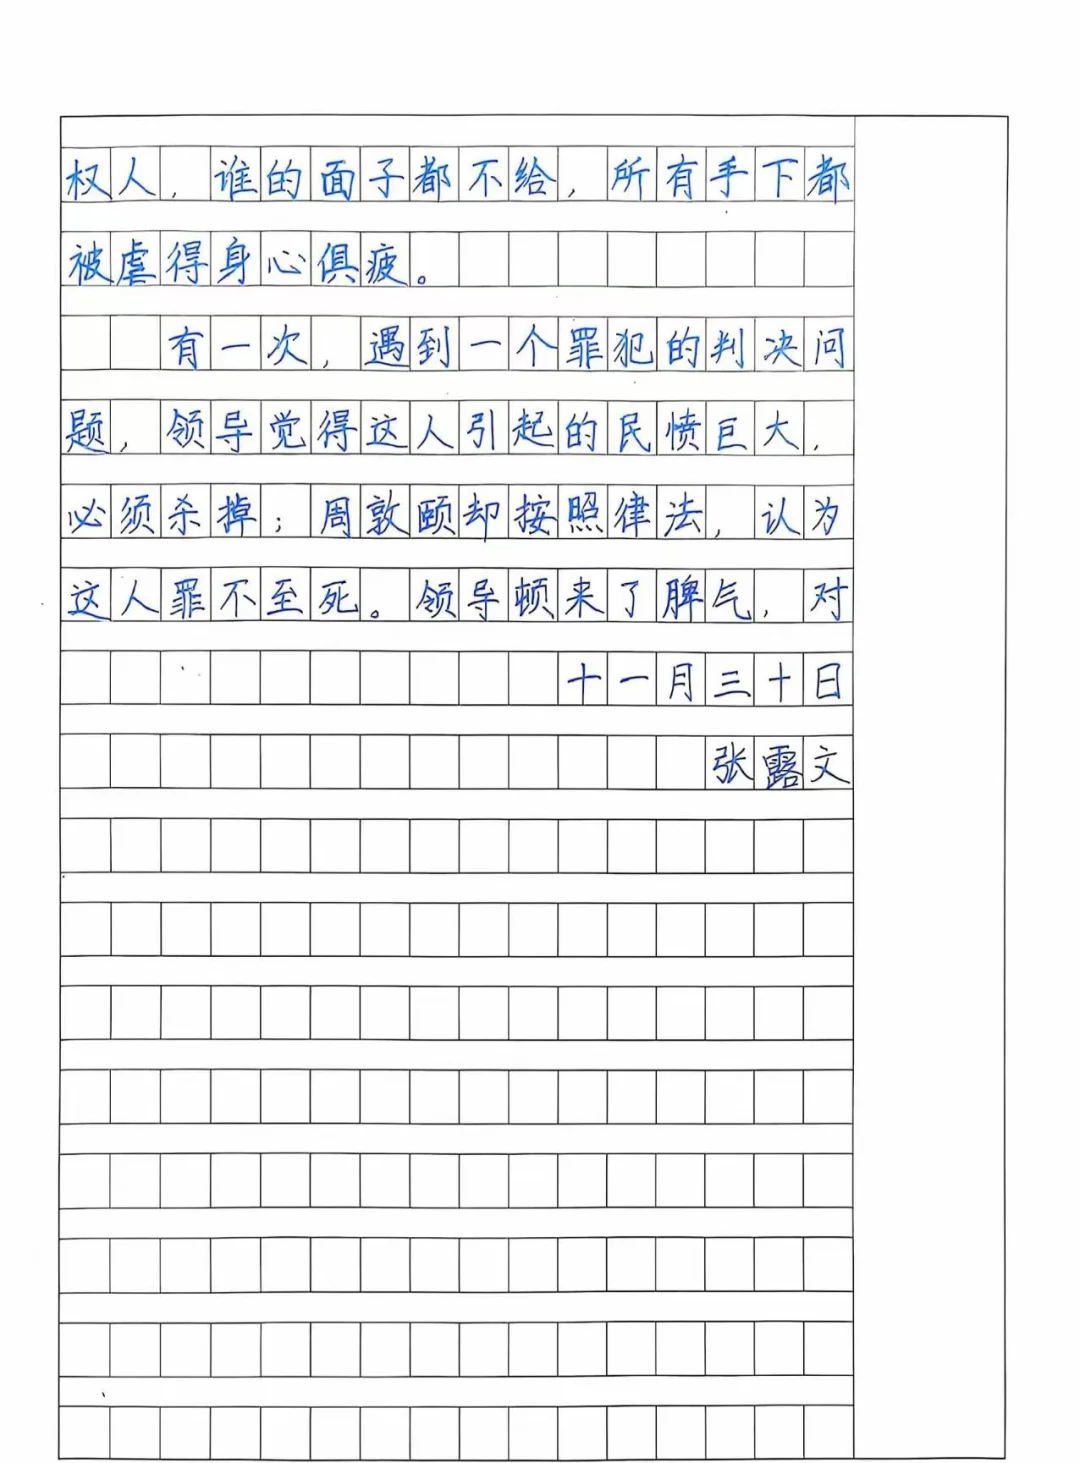 权人，谁的面子都不给，所有手下都
被虐得身心俱疲。
有一次，遇到一个罪犯的判决问
题，领导觉得这人引起的民愤巨大，
必须杀掉；周敦颐却按照律法，认为
这人罪不至死。领导顿来了脾气，对
十一月三十日
张露文